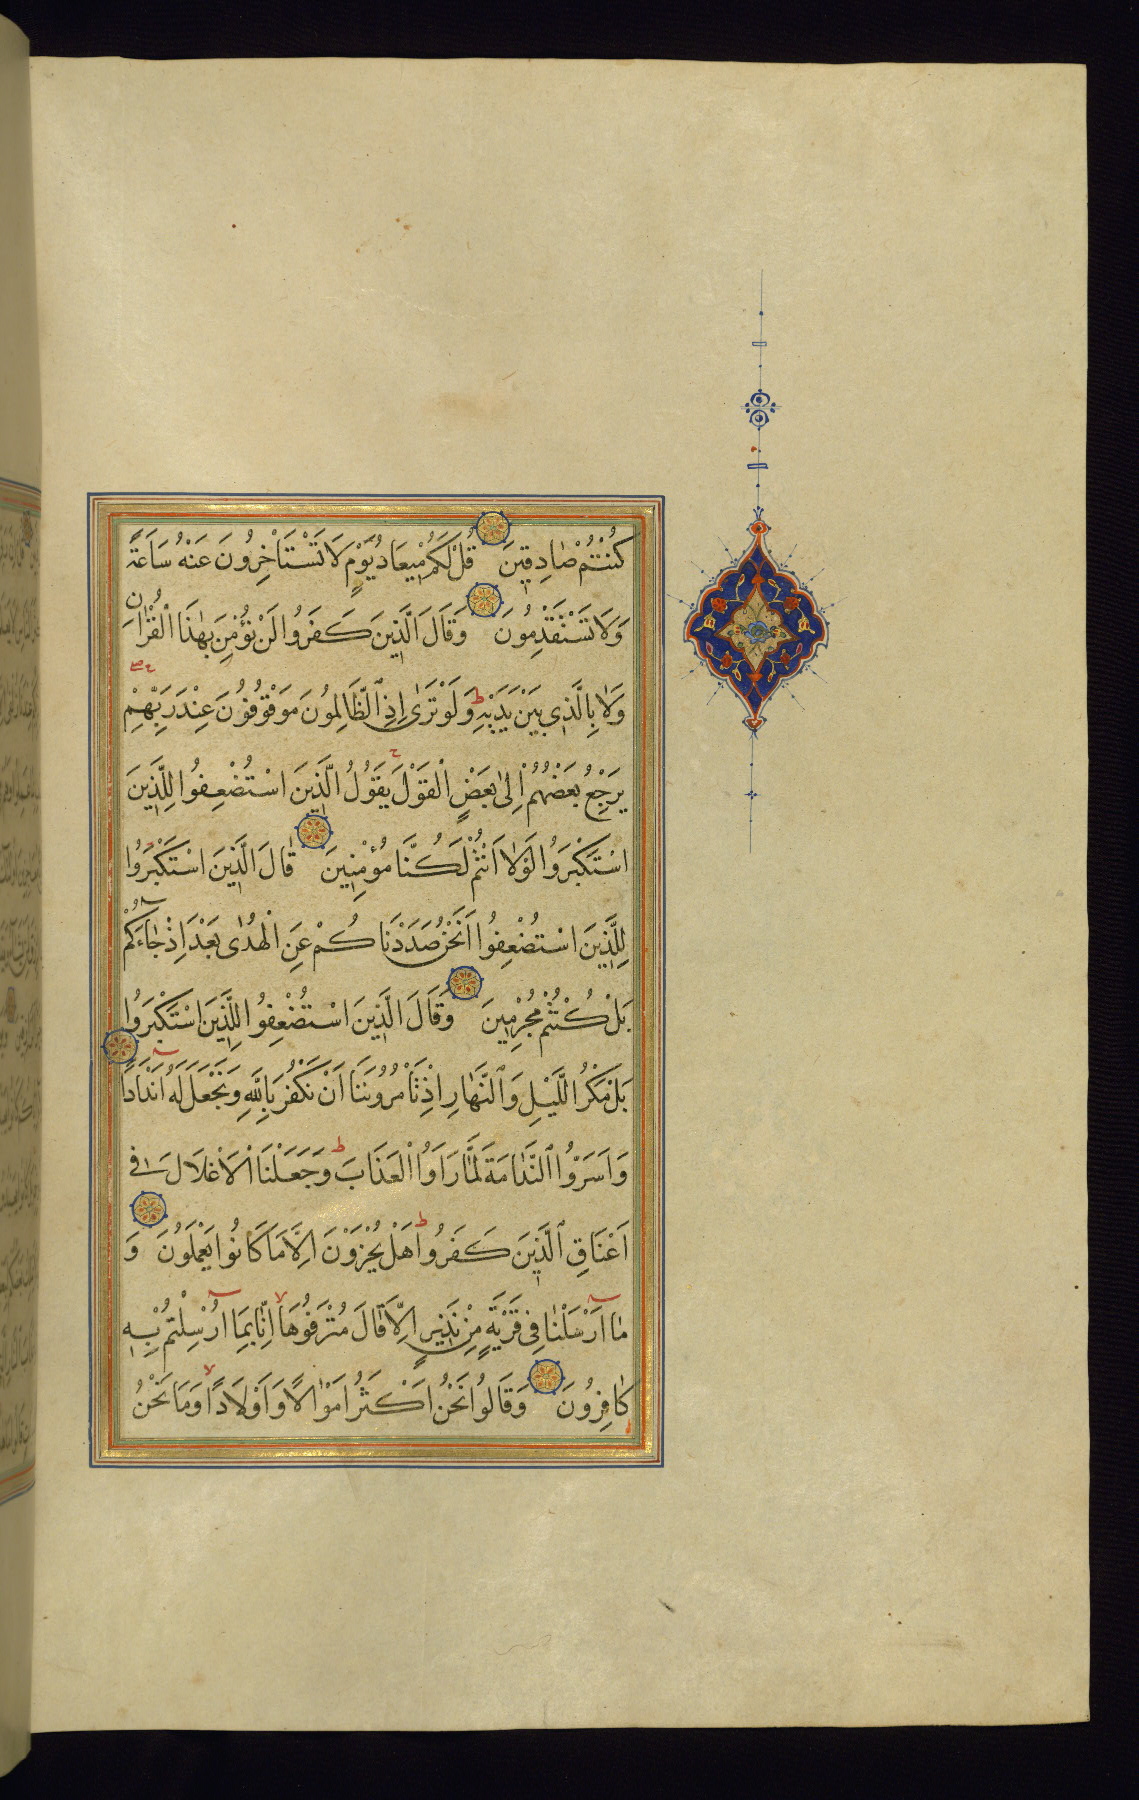 كُنْتُمْ صَادِقِينَ قُلْ لَكُمْ مِيعَادُ يَوْمٍ لَا تَسْتَأْخِرُونَ عَنْهُ سَاعَةً
وَلَا تَسْتَقْدِمُونَ وَقَالَ الَّذِينَ كَفَرُوا لَنْ نُؤْمِنَ بِهٰذَا الْقُرْاٰنِ
وَلَا بِالَّذِي بَيْنَ يَدَيْهِ وَلَوْ تَرٰى اِذِ الظَّالِمُونَ مَوْقُوفُونَ عِنْدَ رَبِّهِمْ
يَرْجِعُ بَعْضُهُمْ اِلٰى بَعْضٍ الْقَوْلَ يَقُولُ الَّذِينَ اسْتُضْعِفُوا لِلَّذِينَ
اسْتَكْبَرُوا لَوْلَا اَنْتُمْ لَكُنَّا مُؤْمِنِينَ قَالَ الَّذِينَ اسْتَكْبَرُوا
لِلَّذِينَ اسْتُضْعِفُوا اَنَحْنُ صَدَدْنَاكُمْ عَنِ الْهُدٰى بَعْدَ اِذْ جَاءَكُمْ
بَلْ كُنْتُمْ مُجْرِمِينَ وَقَالَ الَّذِينَ اسْتُضْعِفُوا لِلَّذِينَ اسْتَكْبَرُوا
بَلْ مَكْرُ الَّيْلِ وَالنَّهَارِ اِذْ تَأْمُرُونَنَا اَنْ نَكْفُرَ بِاللّٰهِ وَنَجْعَلَ لَهُ اَنْدَادًا
وَاَسَرُّوا النَّدَامَةَ لَمَّا رَاَوُا الْعَذَابَ وَجَعَلْنَا الْاَغْلَالَ فِي
اَعْنَاقِ الَّذِينَ كَفَرُوا هَلْ يُجْزَوْنَ اِلَّا مَا كَانُوا يَعْمَلُونَ وَ
مَا اَرْسَلْنَا فِي قَرْيَةٍ مِنْ نَذِيرٍ اِلَّا قَالَ مُتْرَفُوهَا اِنَّا بِمَا اُرْسِلْتُمْ بِهِ
كَافِرُونَ وَقَالُوا نَحْنُ اَكْثَرُ اَمْوَالًا وَاَوْلَادًا وَمَا نَحْنُ